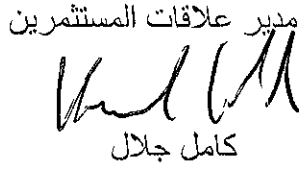 مدير علاقات المستثمرين
كامل جلال